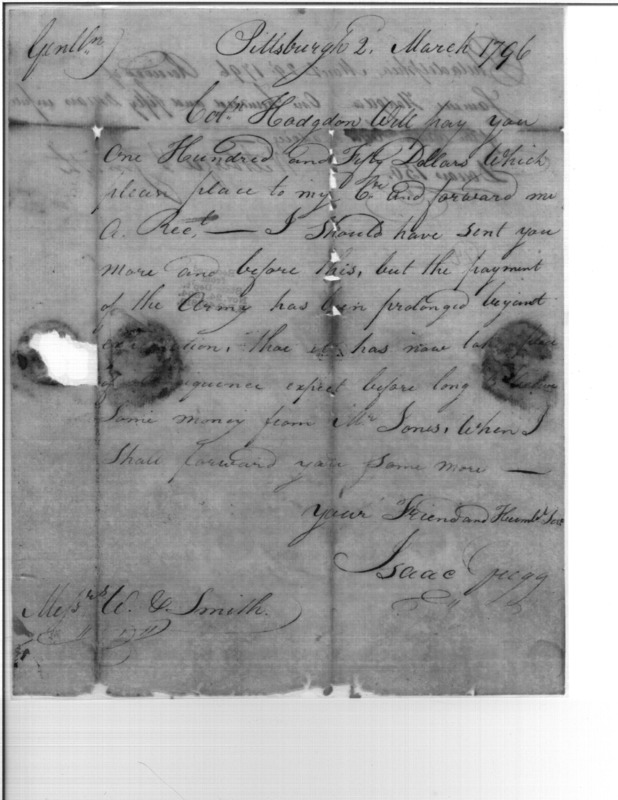 Gentlⁿ Pittsburgh 2. March 1796
Colⁿ Hodgdon Will pay you
One Hundred and Fifty Dollars Which
please place to my Cʳ and forward me
A. Recᵗ — I Should have sent you
more and before this, but the payment
of the Army has been prolonged beyont
that it has now
expect before long
Some money from Mʳ Jones, When I
Shall forward you some more —
your Friend and Humbˡ Ser
Isaac Gregg
Messʳˢ W. & Smith.